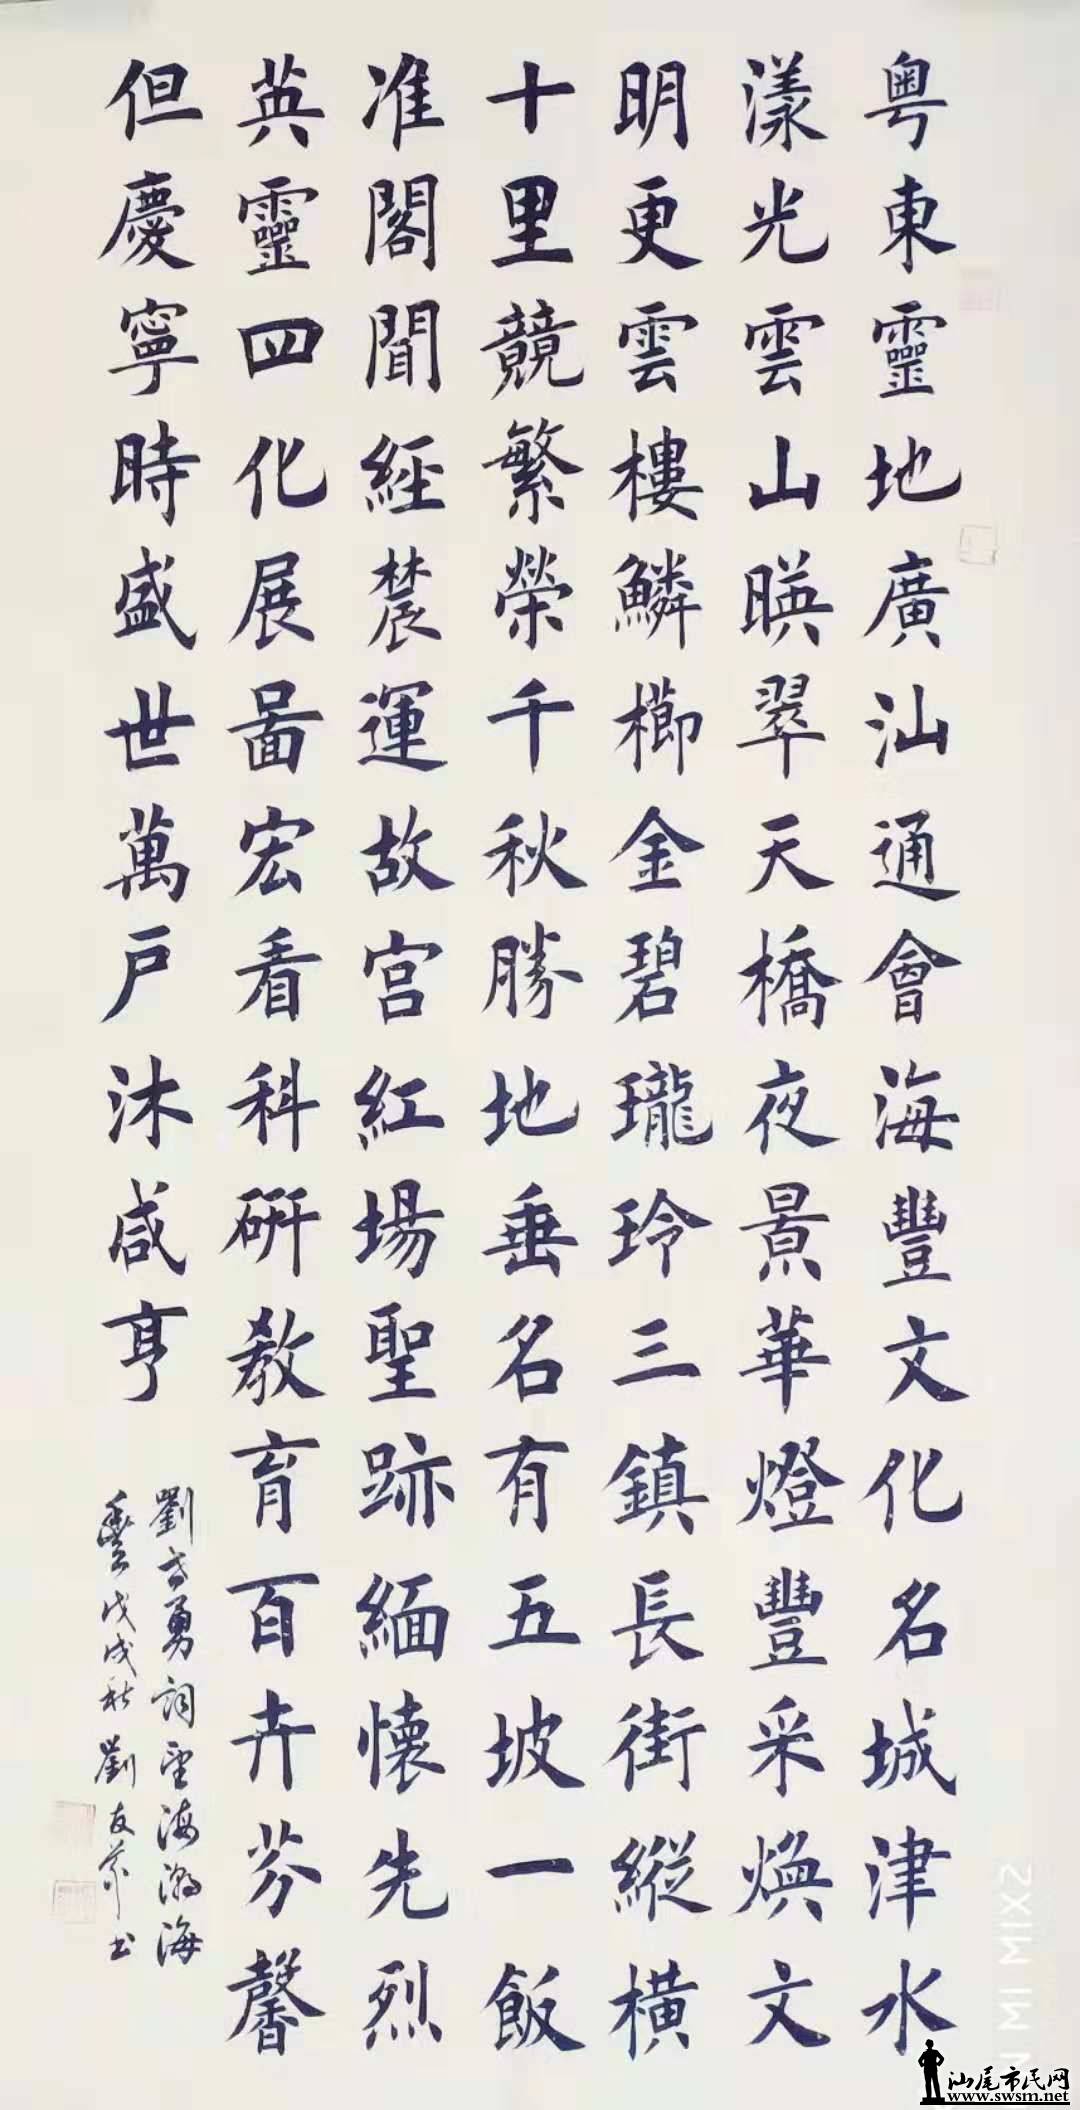 粤東靈地廣汕通會海豐文化名城津水
漾光雲山暎翠天橋夜景華燈豐采煥文
明更雲樓鱗櫛金碧瓏玲三鎮長街縱橫
十里競繁榮千秋勝地垂名有五坡一飯
准閣聞經莀運故宫紅場聖跡緬懷先烈
英靈四化展啚宏看科研教育百卉芬馨
但慶寧時盛世萬户沐咸亨
劉勇詞望海潮海
豐戊戌秋劉友芥书
汕尾市民网
www.swsm.net
N MI MIX2